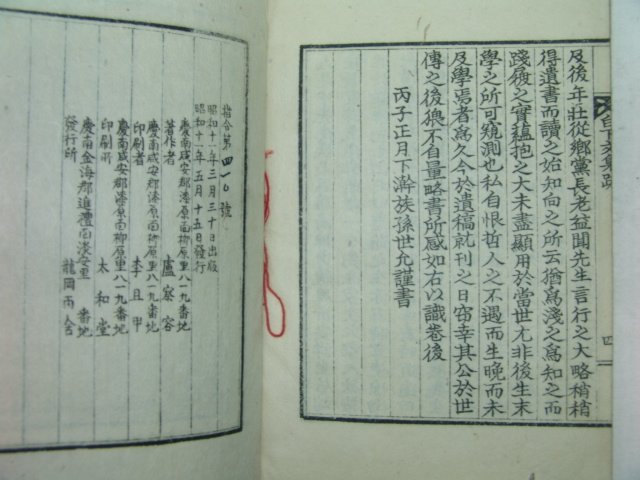 及後年壯從鄉黨長老益聞先生言行之大略稍稍
得遺書而讀之始知向之所云猶爲淺之爲知之而
踐履之實蘊抱之大未盡顯用於當世尤非後生末
學之所可窺測也私自恨哲人之不遇而生晩而未
及學焉者爲久今於遺稿就刊之日窃幸其公於世
傳之後猥不自量略書所感如右以識卷後
丙子正月下澣族孫世允謹書
四
指令第四一〇號
昭和十一年三月三十日出版
昭和十一年五月十五日發行
慶南咸安郡漆原面柳原里八一九番地
著作者 盧容
慶南咸安郡漆原面柳原里八一九番地
印刷者 李且甲
慶南咸安郡漆原面柳原里八一九番地
印刷所 太和堂
慶南金海郡進禮面淡安里 番地
發行所 龍岡精舍